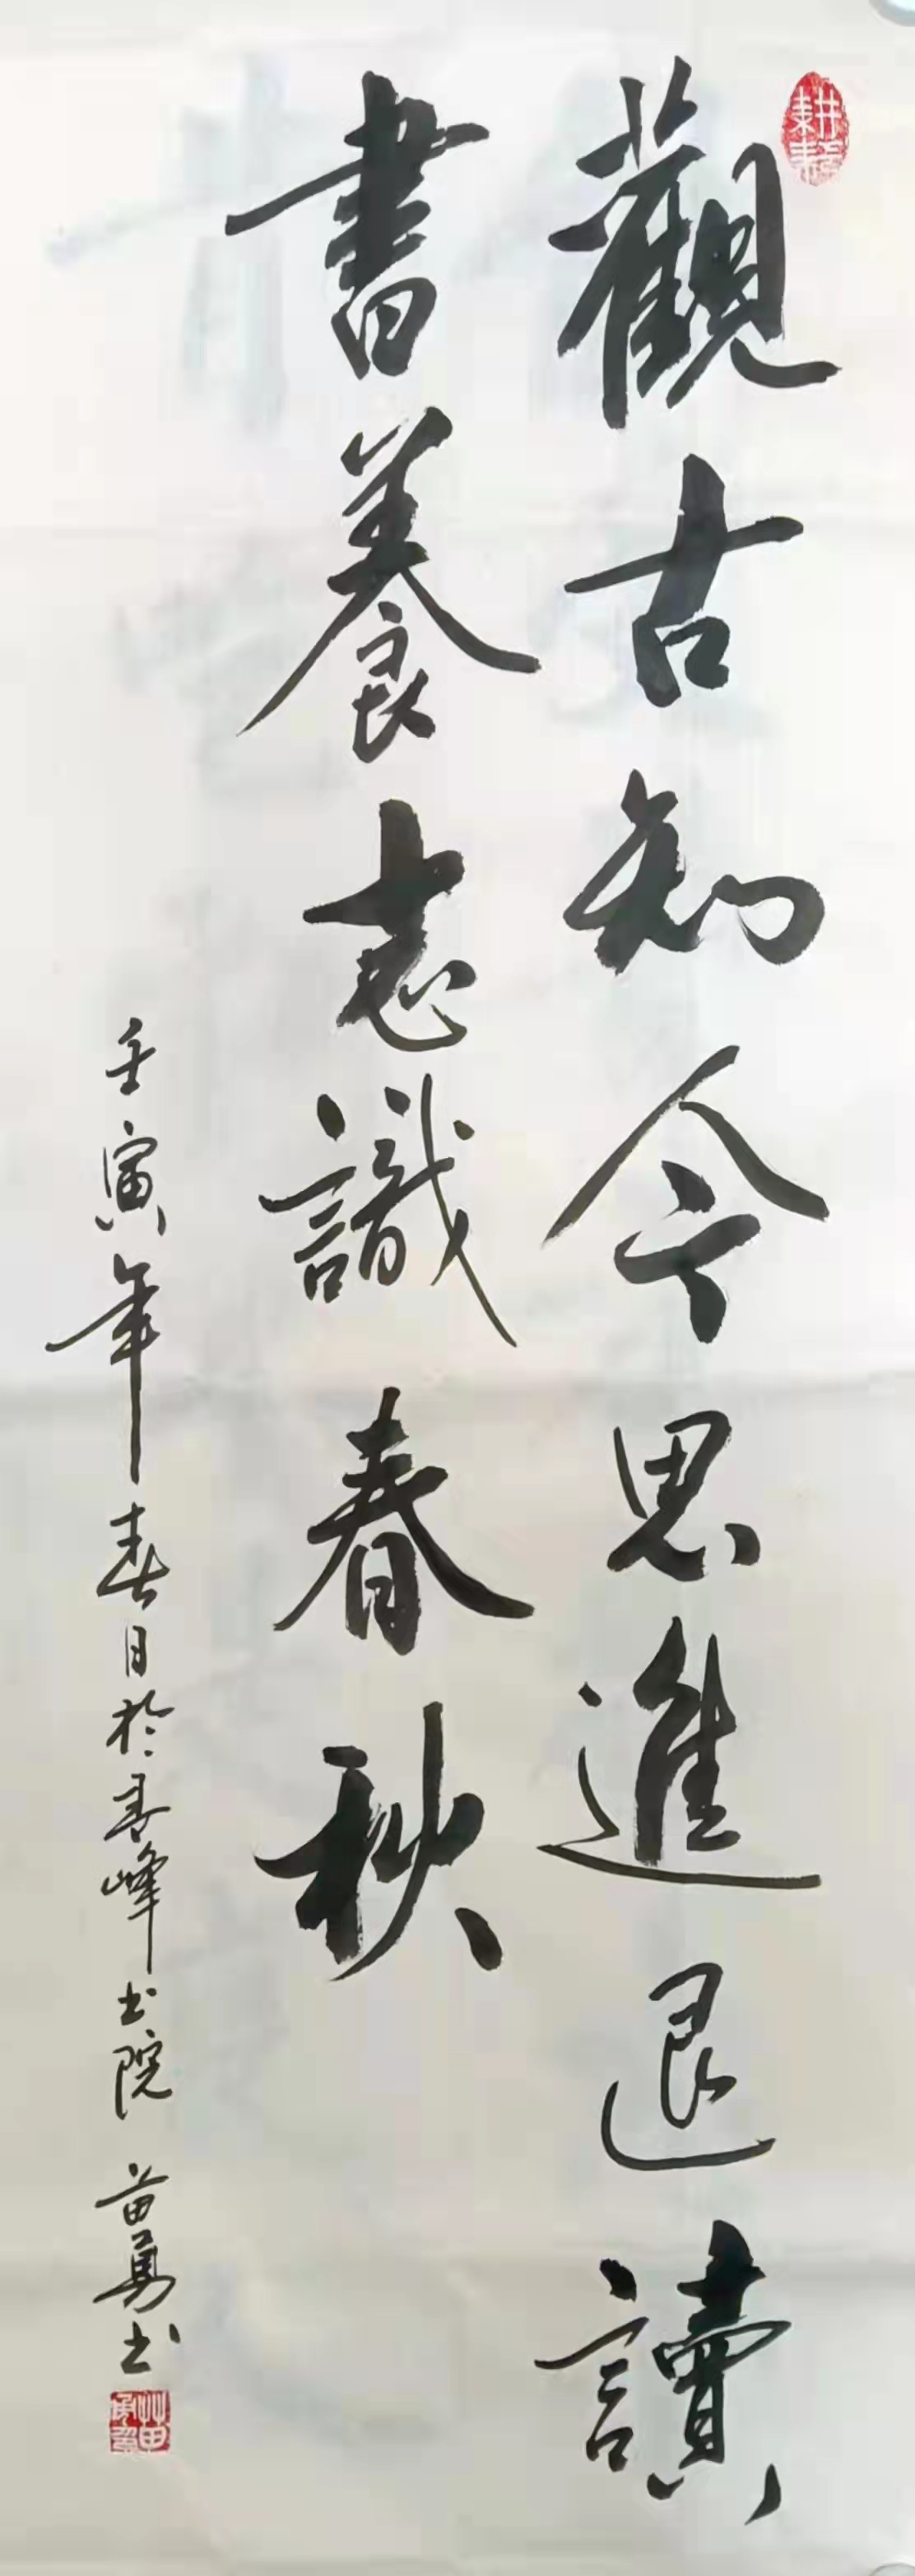 觀古知今思進退讀
書養志識春秋
壬寅年春日於春峰书院 苗勇书